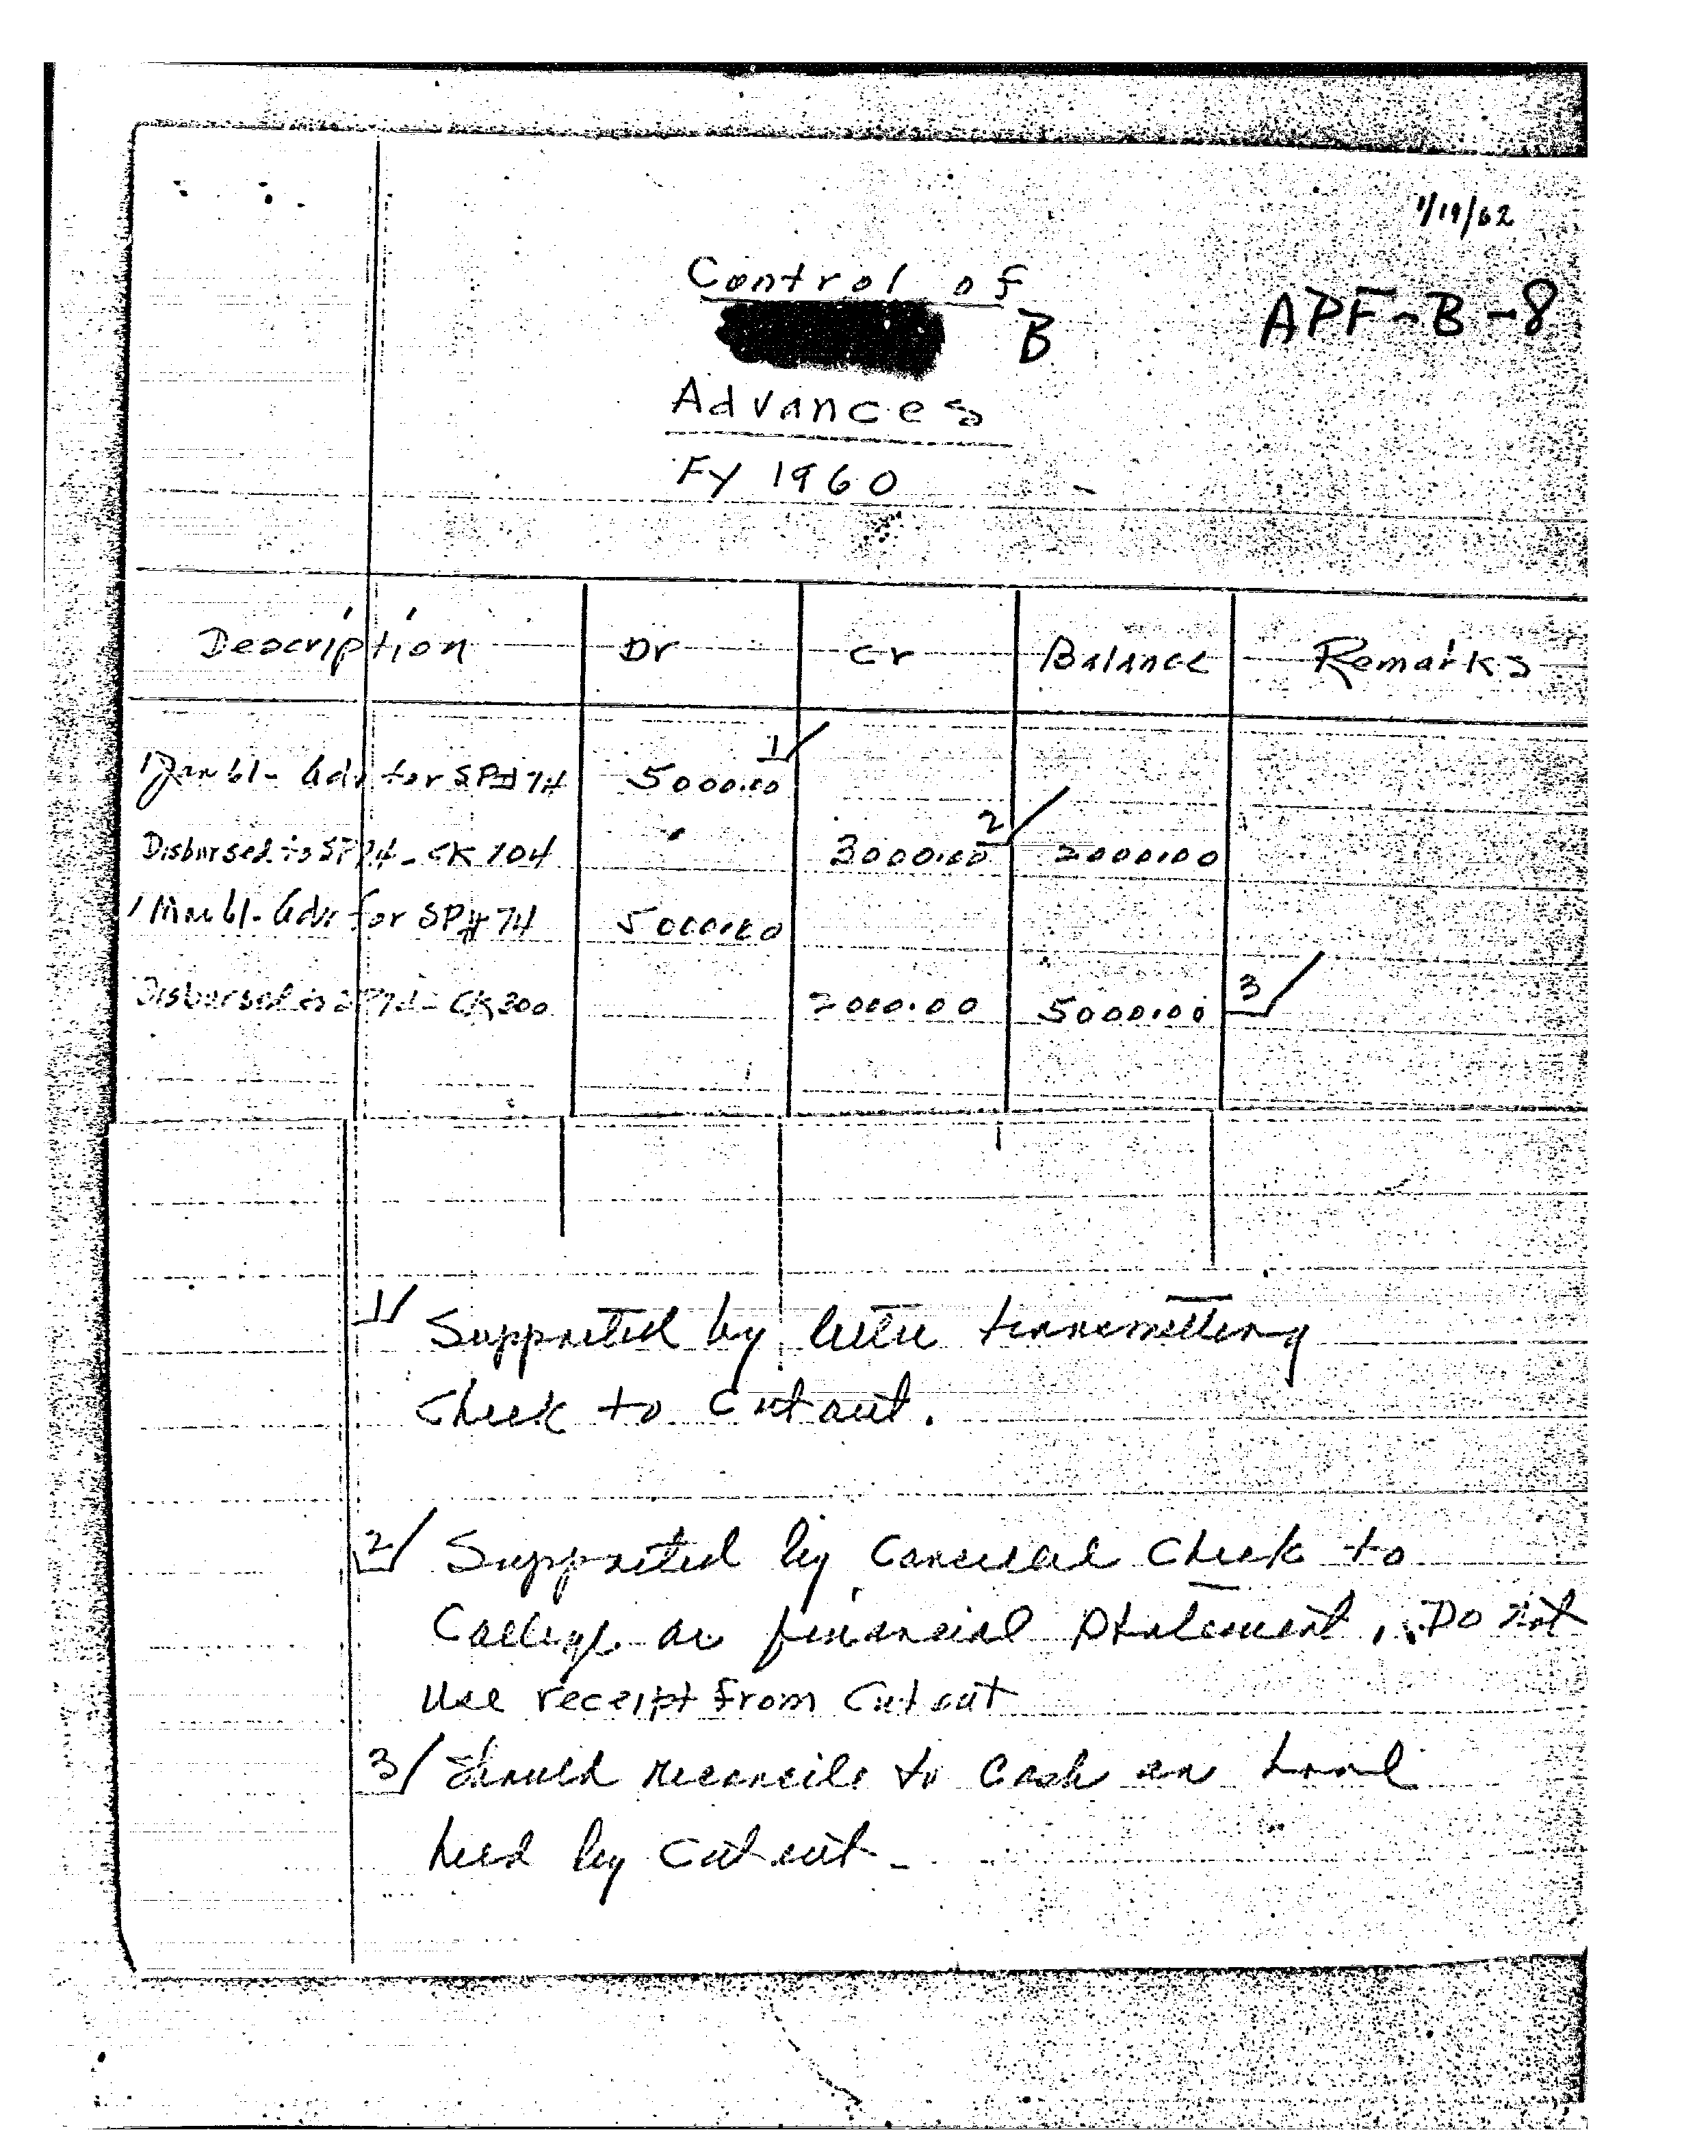 1/19/62
Control of
B
APF-B-8
Advances
FY 1960
Description Dr Cr Balance Remarks
1 Jan 61 - Adv for SP# 74 5000.00 1/
Disbursed to SP74 - CK 104 3000.00 2/ 2000.00
1 Mar 61 - Adv for SP# 74 5000.00
Disbursed to SP74 - CK 300 2000.00 5000.00 3/
1/ Supported by letter transmitting
Check to Cutout.
2/ Supported by Cancelled Check to
College or financial statement, Do not
Use receipt from Cutout
3/ Should reconcile to Cash on hand
held by Cutout -